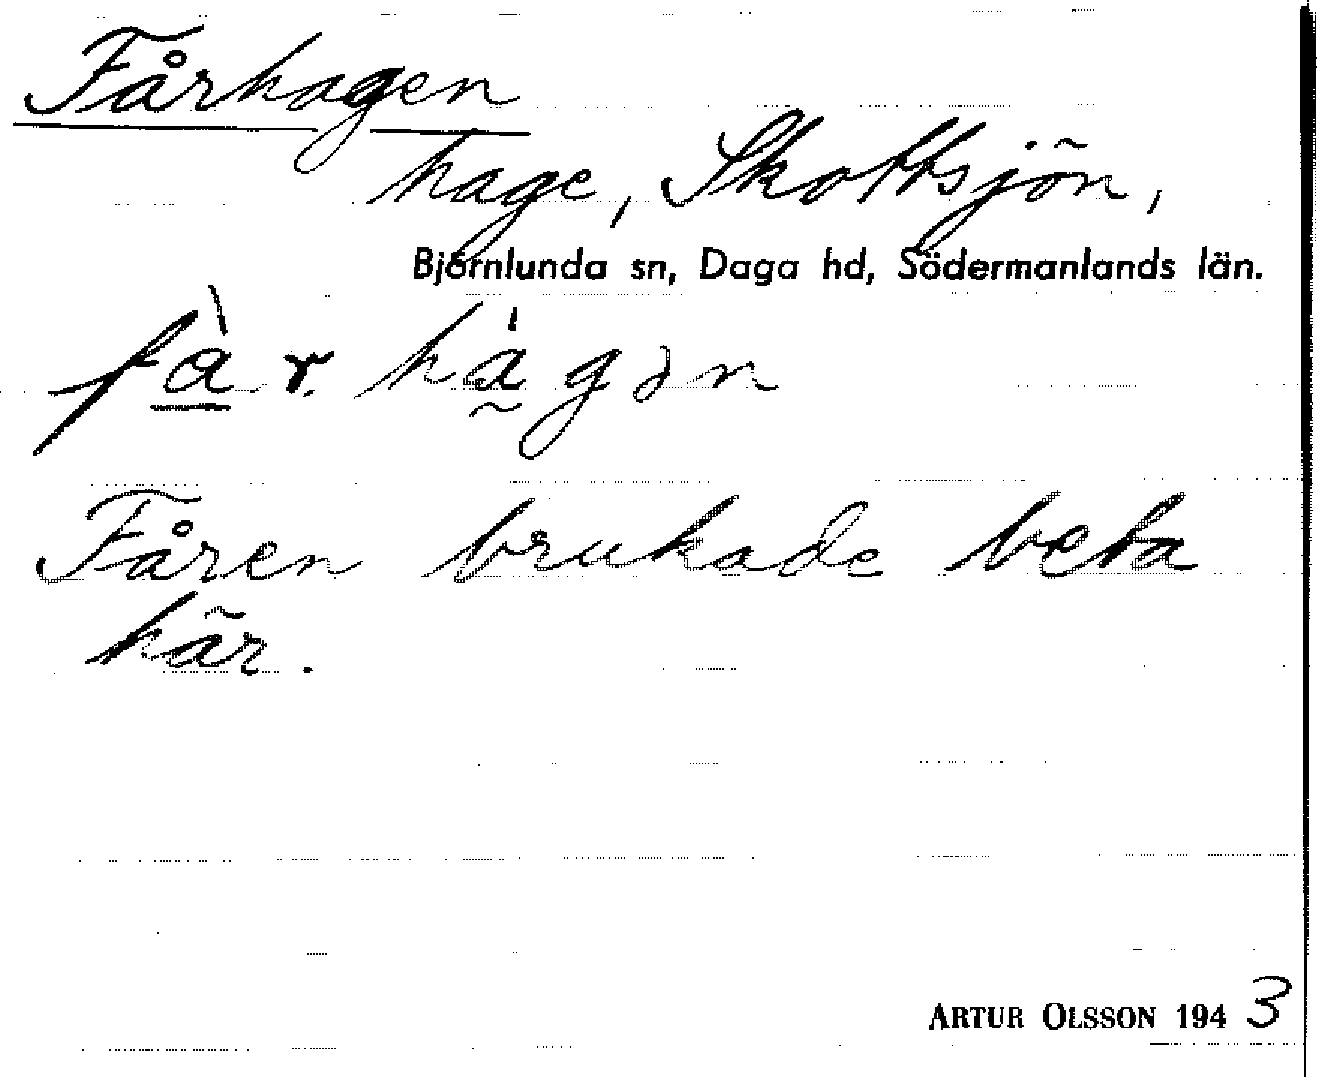 Fårhagen
hage, Skottsjön,
Björnlunda sn, Daga hd, Södermanlands län.
fàr hágən
Fåren brukade beta
här.
ARTUR OLSSON 1943